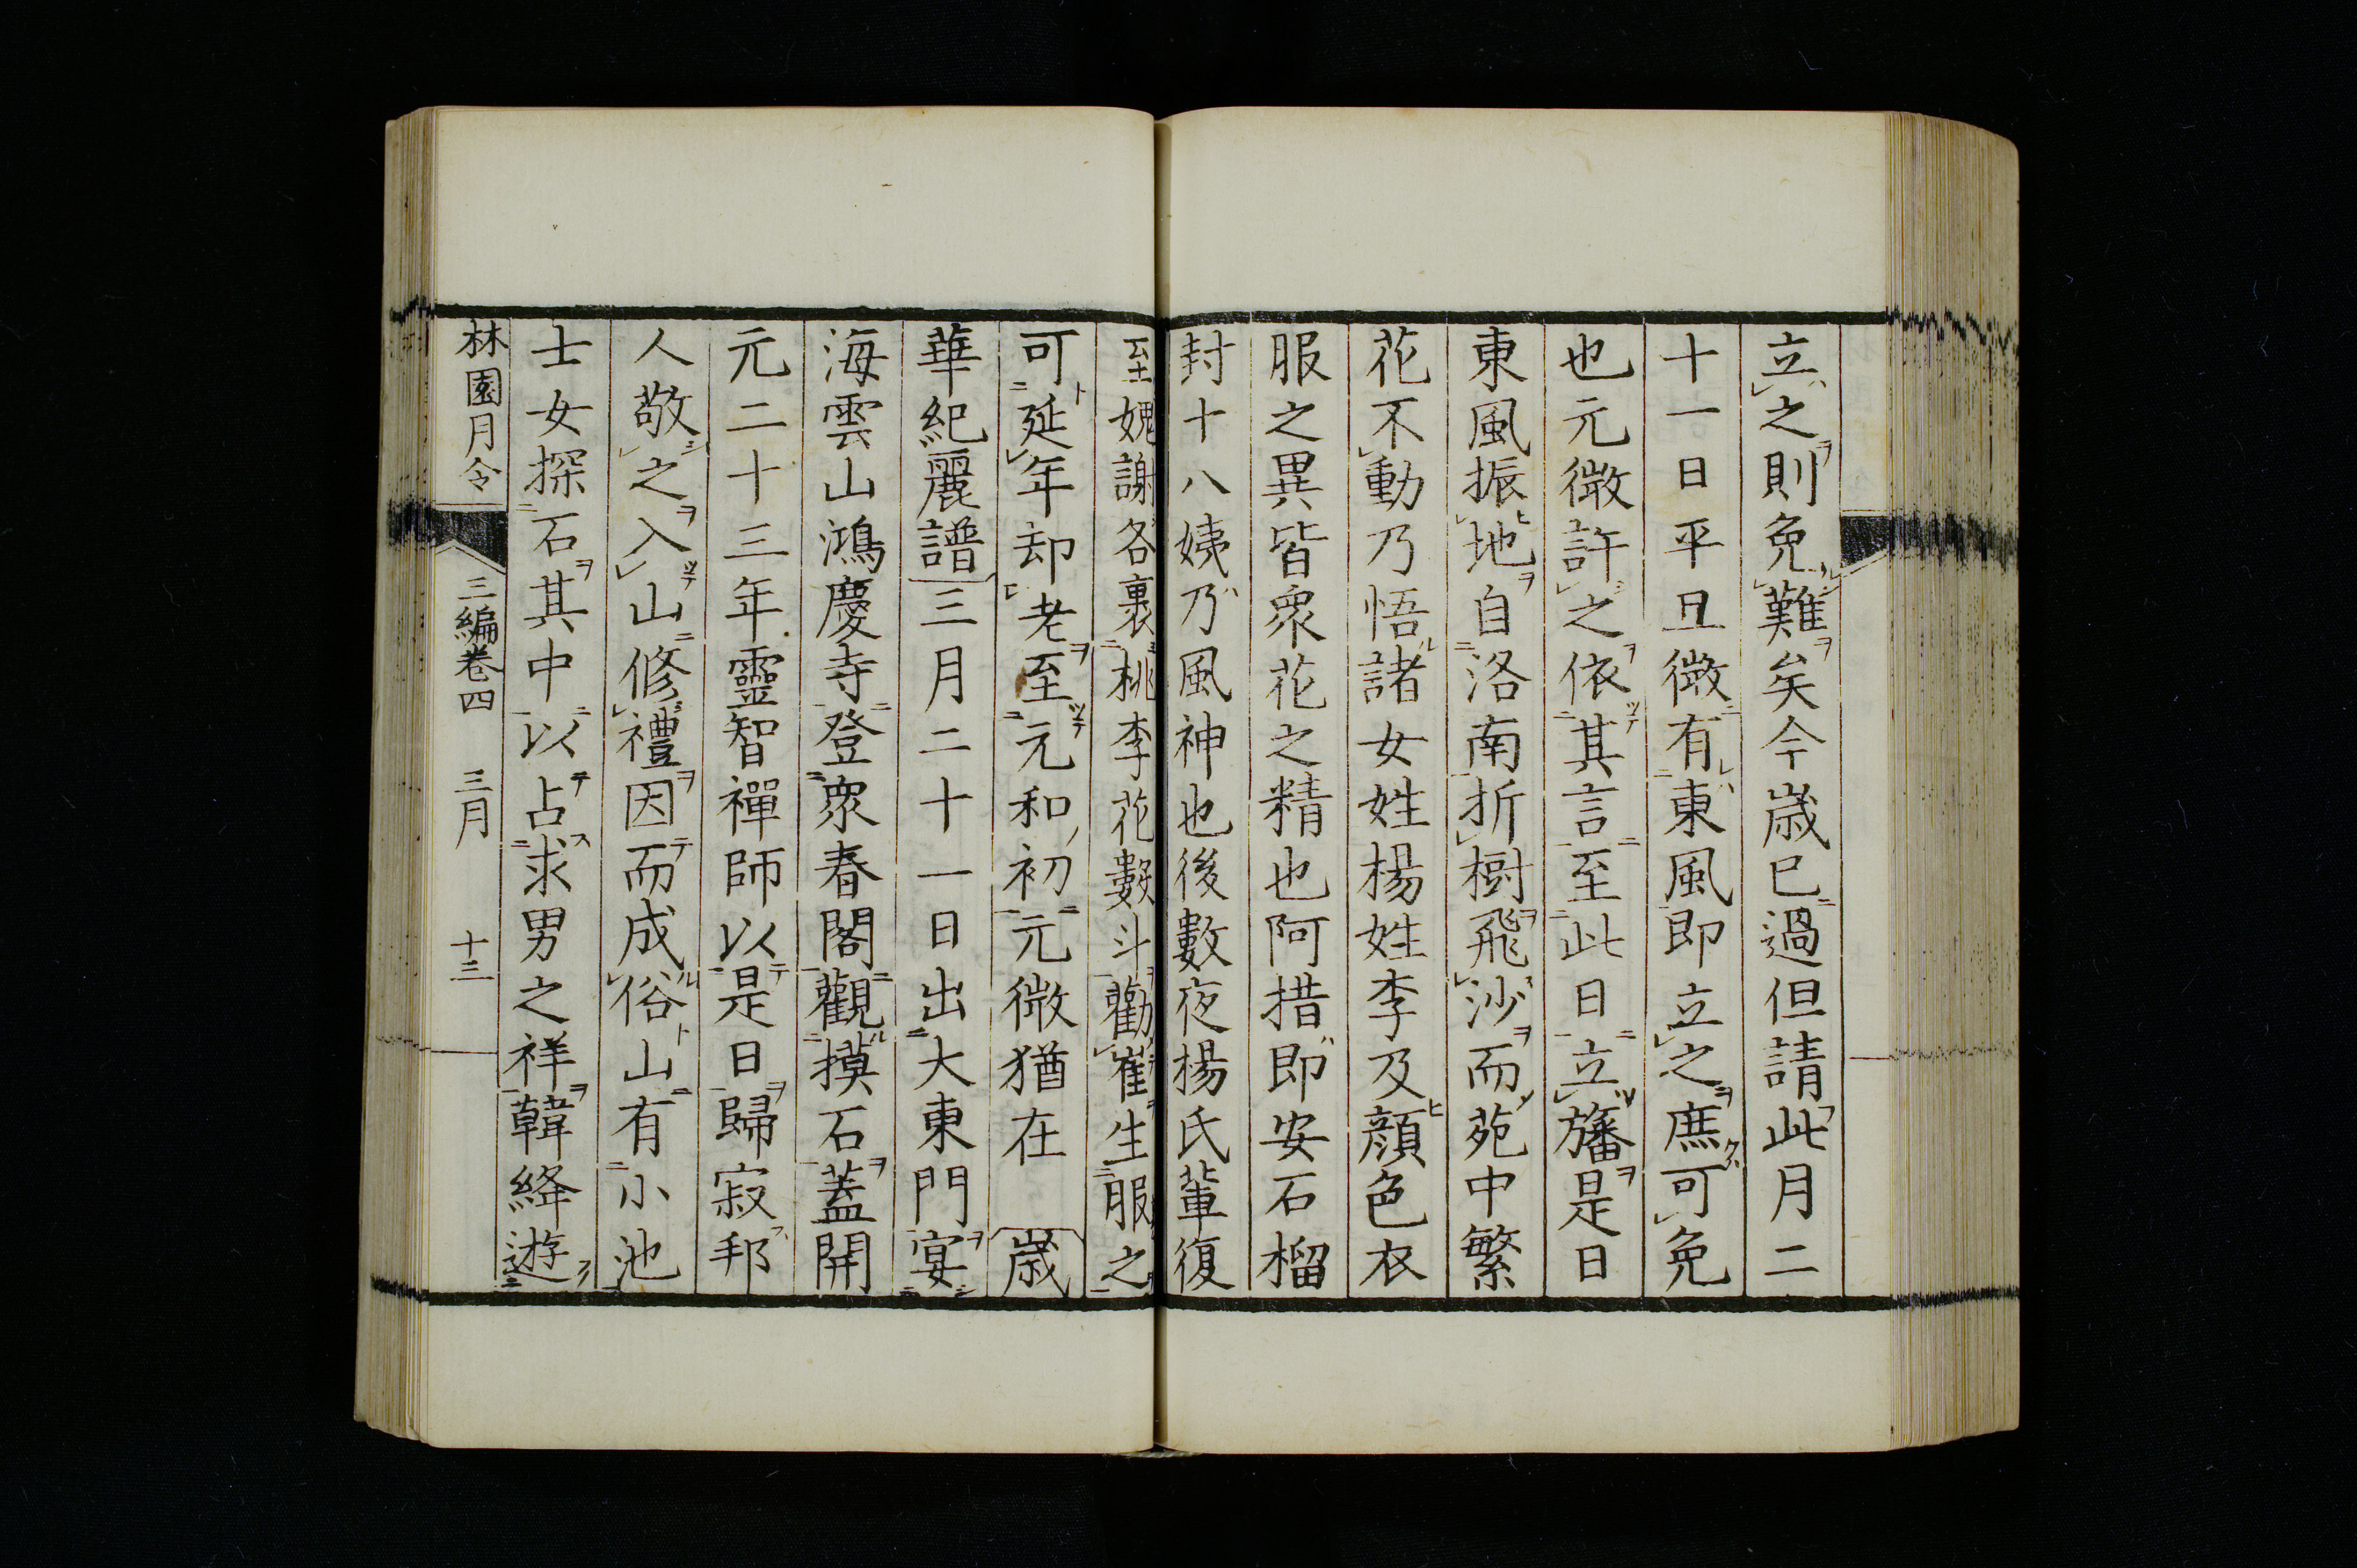 立之則免難矣今歳已過但請此月二
十一日平旦微有東風即立之庶可免
也元微許之依其言至此日立旛是日
東風振地自洛南折樹飛沙而苑中繁
花不動乃悟諸女姓楊姓李及顔色衣
服之異皆衆花之精也阿措即安石榴
封十八姨乃風神也後數夜楊氏輩復
至媿謝各裹桃李花數斗勸崔生服之
可延年却老至元和初元微猶在　歳
華紀麗譜三月二十一日出大東門宴
海雲山鴻慶寺登衆春閣觀摸石蓋開
元二十三年靈智禪師以是日歸寂邦
人敬之入山修禮因而成俗山有小池
士女探石其中以占求男之祥韓絳遊
林園月令　三編卷四　三月　十三